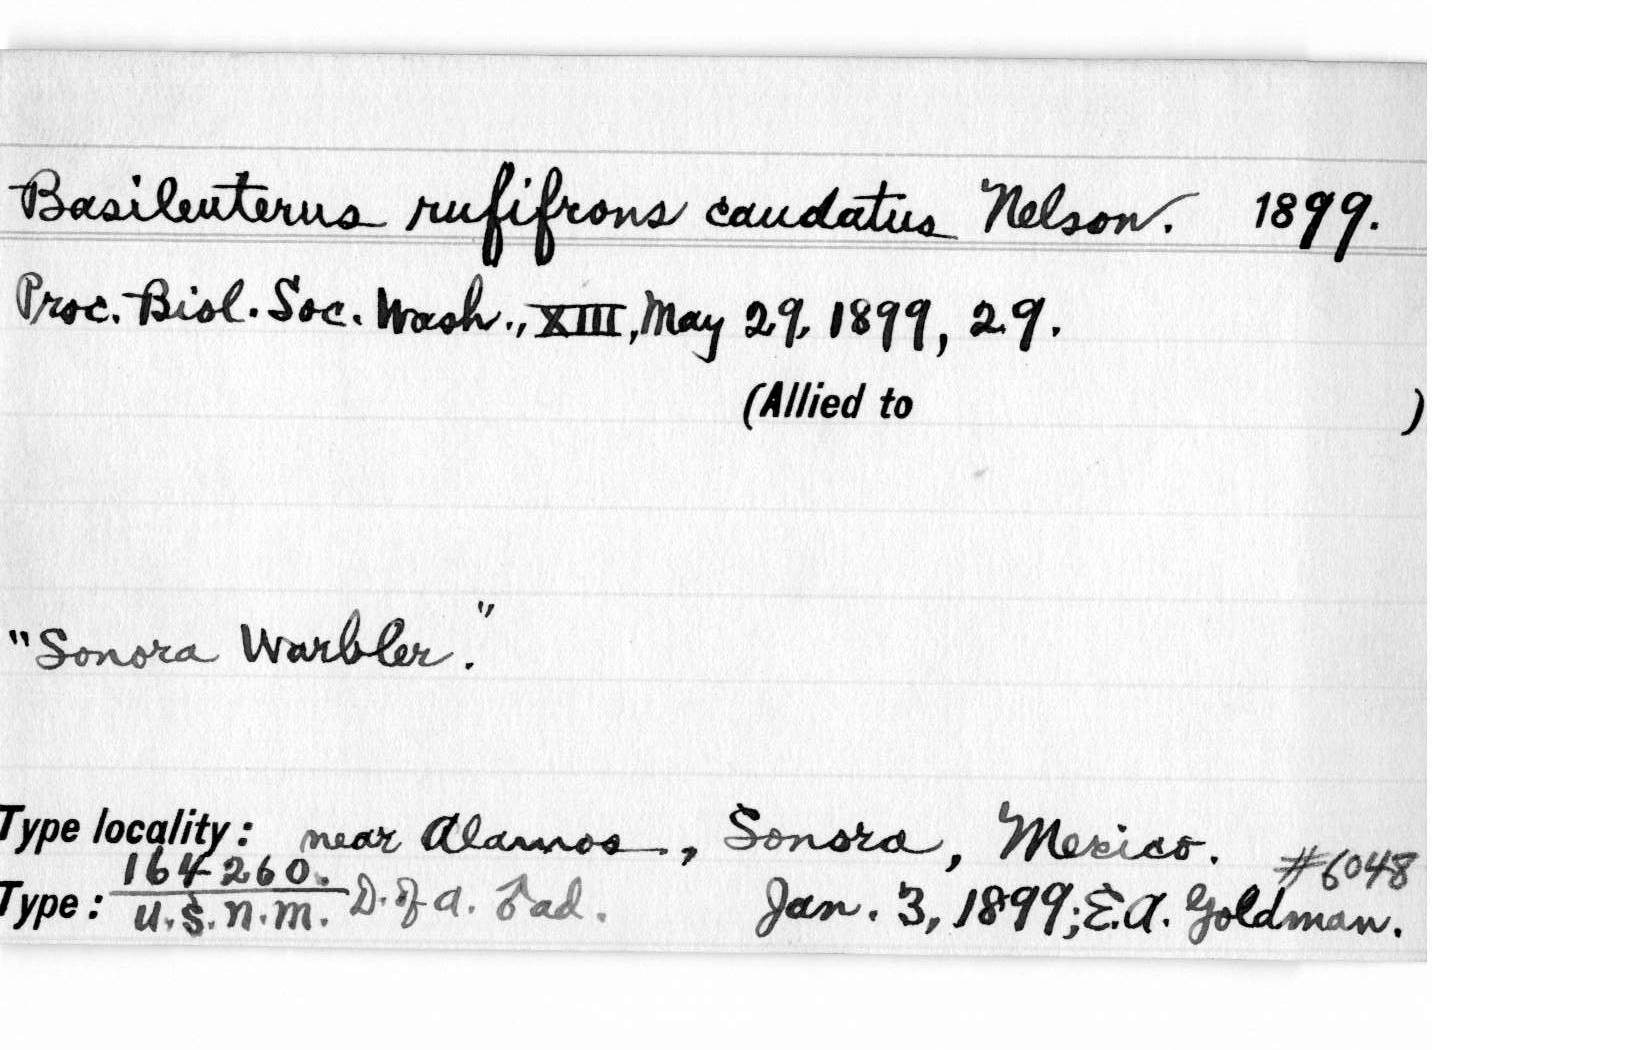 Basileuterus rufifrons caudatus Nelson. 1899.
Proc. Biol. Soc. Wash., XIII, May 29, 1899, 29.
(Allied to )
"Sonora Warbler."
Type locality: near Alamos, Sonora, Mexico.
#6048
164260.
Type: U.S.N.M. D. of A. ♂ ad. Jan. 3, 1899; E.A. Goldman.